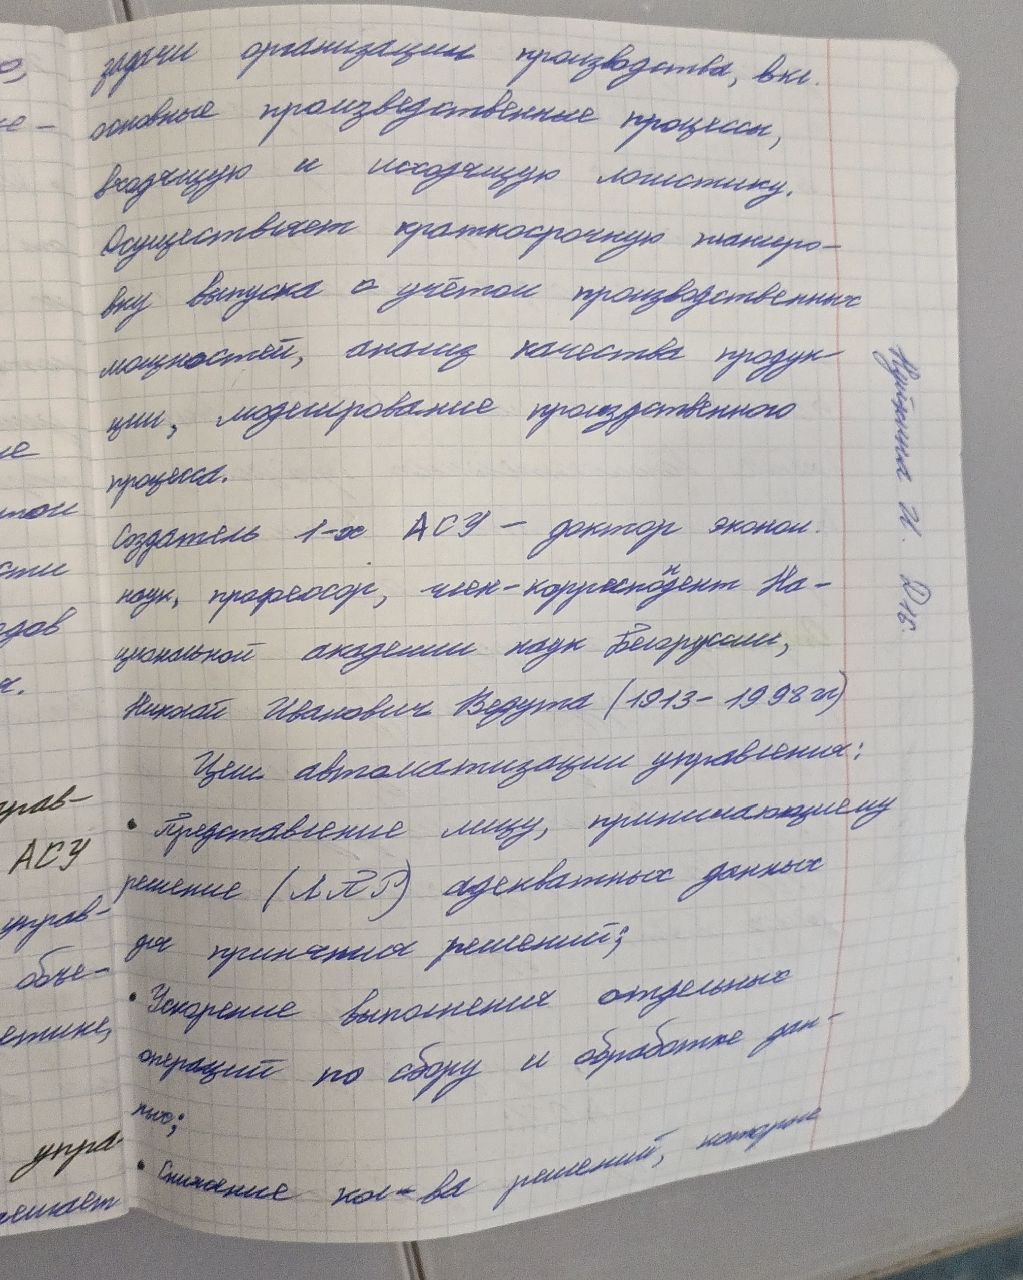 задачи организации производства, вкл.
основные производственные процессы,
входящую и исходящую логистику.
Осуществляет краткосрочную планиро-
вку выпуска с учётом производственных
мощностей, анализ качества продук-
ции, моделирование произдственного
процесса.
Создатель 1-х АСУ – доктор эконом.
наук, профессор, член-корреспондент На-
циональной академии наук Белоруссии,
Николай Иванович Ведута (1913-1998 гг)
Цели автоматизации управления:
• Представление лицу, принимающему
решение (ЛПР) адекватных данных
для принятия решений;
• Ускорение выполнения отдельных
операций по сбору и обработке дан-
ных;
• Снижение кол-ва решений, которые
е
сти
одов
управ-
АСУ
управ-
объе-
упра-